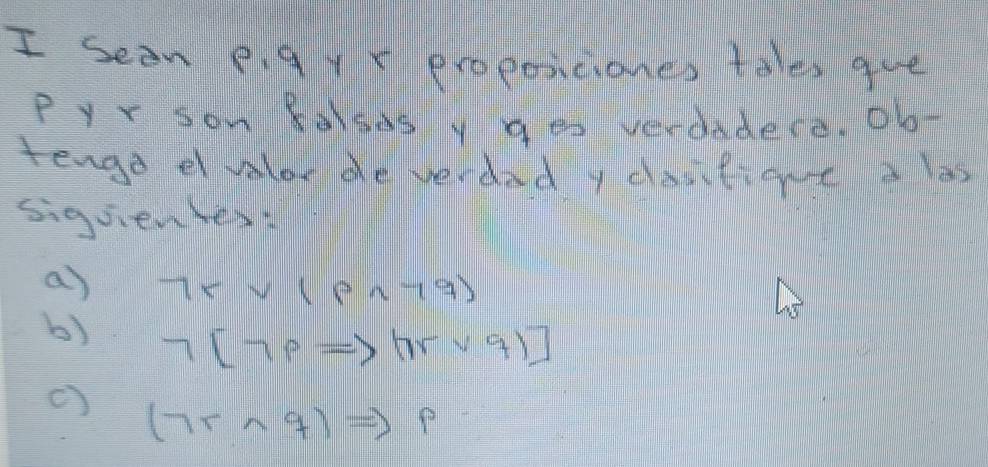 I Sean p, q y r proposiciones tales que
p y r son falsas y q es verdadera. Ob-
tenga el valor de verdad y clasifique a las
siguientes:
a) ¬r ∨ (p ∧ ¬q)
b) ¬[¬p => (¬r ∨ q)]
c) (¬r ∧ q) => p